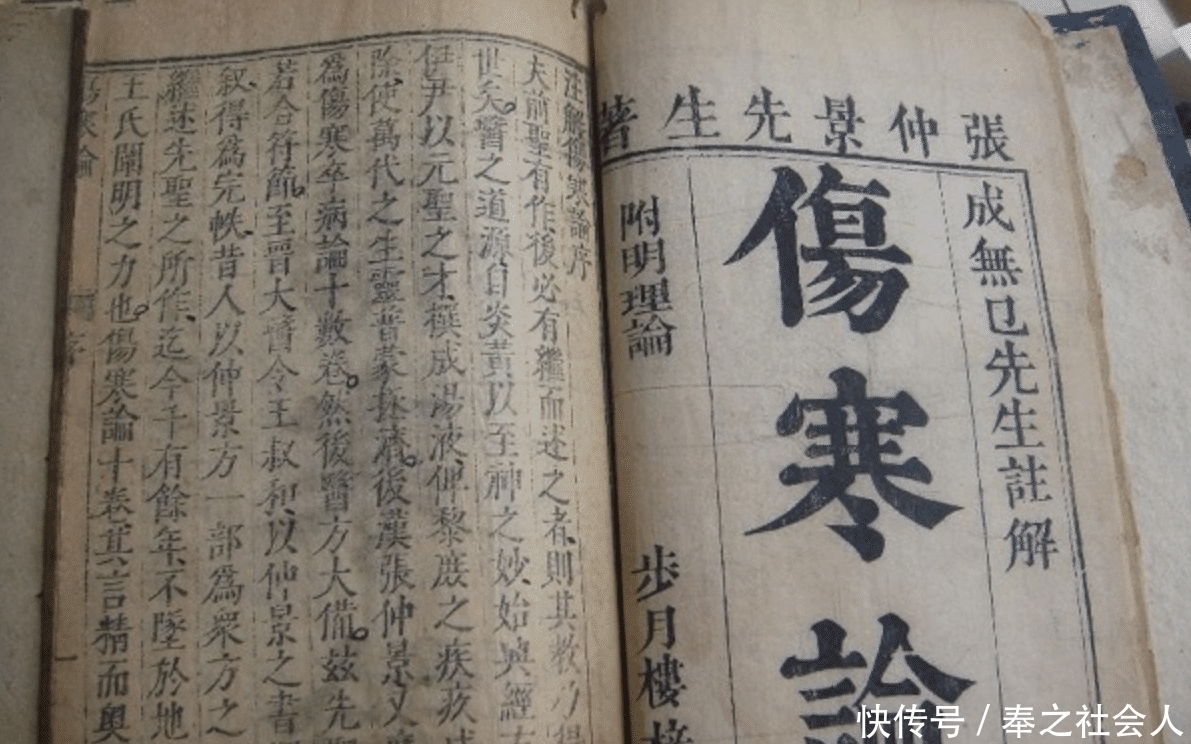 張仲景先生著
成無已先生註解
傷寒論
附明理論
步月樓梓
注解傷寒論序
夫前聖有作後必有繼而述之者則其教乃得
世矣。醫之道源自炎黃以至神之妙始興經方
伊尹以元聖之才撰成湯液俾黎庶之疾疚咸
除使萬代之生靈普蒙拯濟。後漢張仲景又
為傷寒卒病論十數卷。然後醫方大備。茲先
若合符節。至晉大醫令王叔和以仲景之書
叙得為完帙昔人以仲景方一部為衆方之
繼述先聖之所作迄今千有餘年不墜於地
王氏闡明之力也。傷寒論十卷其言精而奥
傷寒論
序
一
快传号 / 奉之社会人